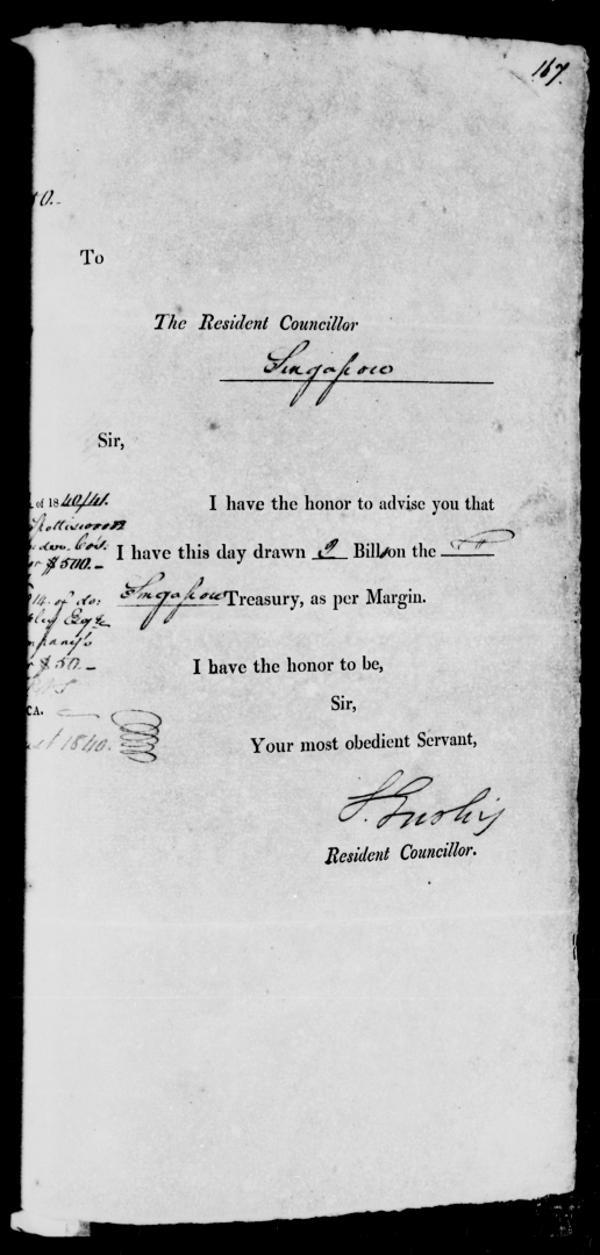 167.
0.-
To
The Resident Councillor
Singapore
Sir,
of 1840/41.
I have the honor to advise you that
Spottiswoode
I have this day drawn 2 Bills on the
$500.-
Singapore Treasury, as per Margin.
14. of do:
Esqre
mpany's
$50.-
I have the honor to be,
Sir,
CA.
Your most obedient Servant,
1840.
Resident Councillor.